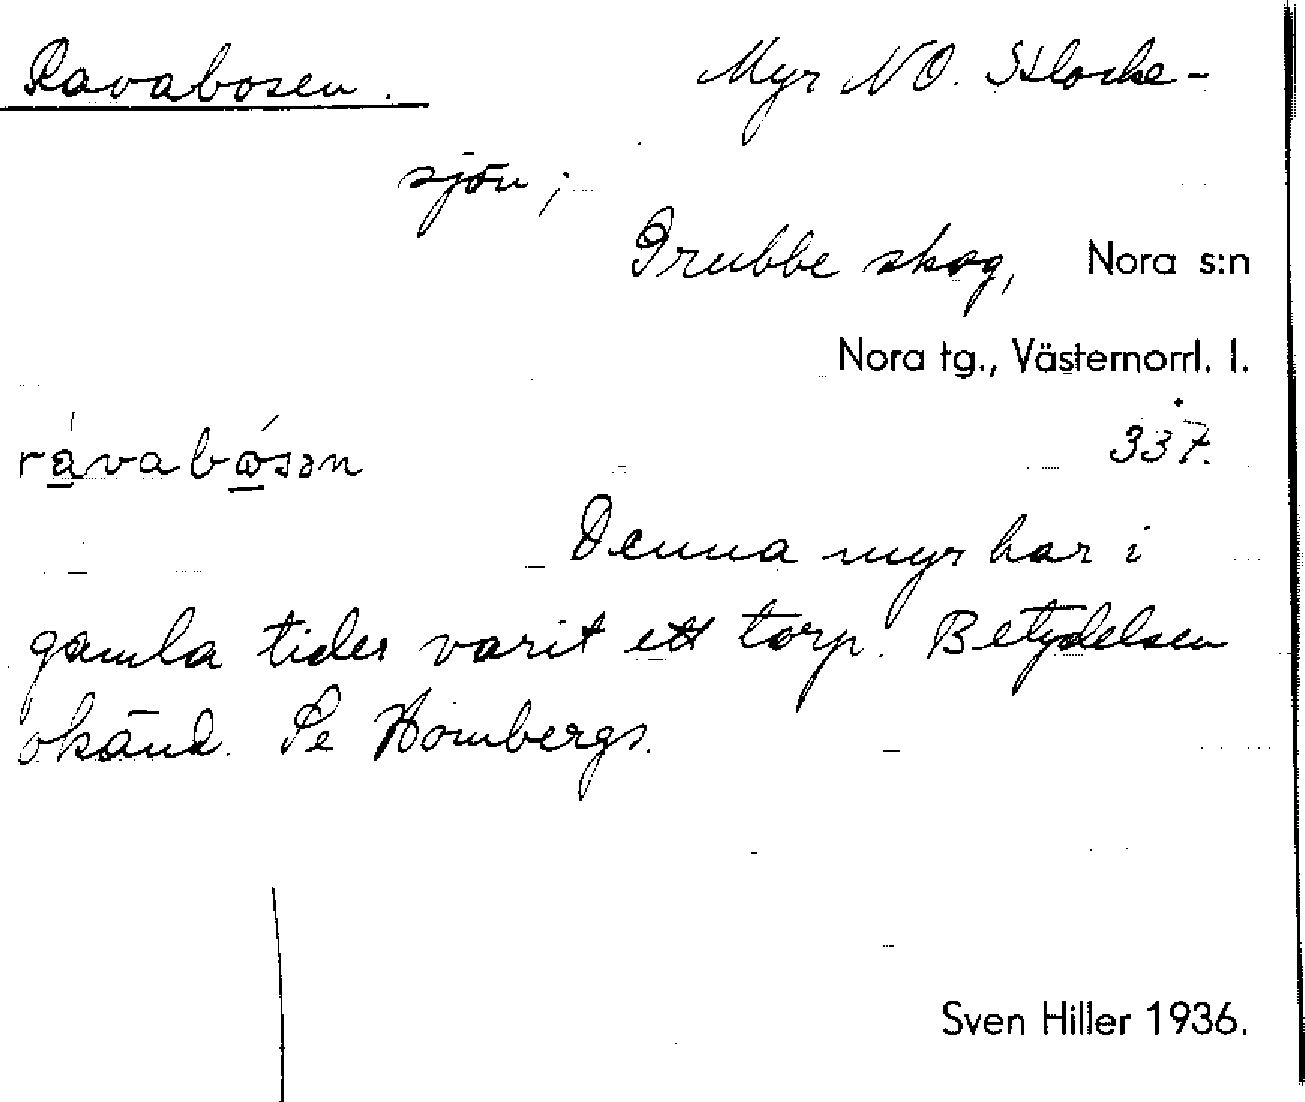 Ravabosen. Myr NO. Stocke-
sjön;
Grubbe skog, Nora s:n
Nora tg., Västernorrl. l.
rávabósən 337.
Denna myr har i
gamla tider varit ett torp. Betydelsen
okänd. Se Hombergs.
Sven Hiller 1936.